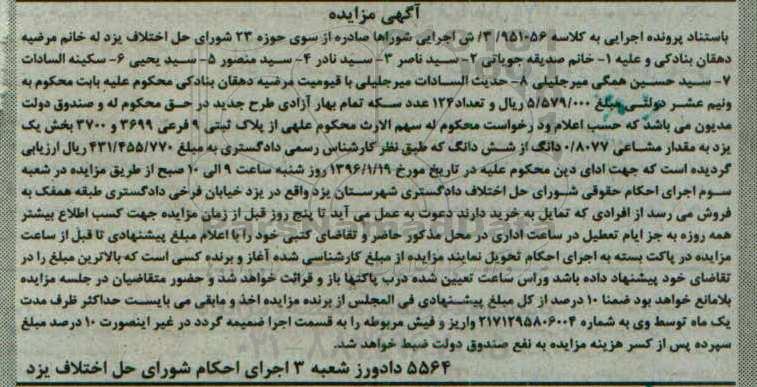 آگهی مزایده
باستناد پرونده اجرایی به کلاسه ۹۵۱۰۵۶/ ۳/ ش اجرایی شوراها صادره از سوی حوزه ۲۳ شورای حل اختلاف یزد له خانم مرضیه
دهقان بنادکی و علیه ۱- خانم صدیقه جویاتی ۲- سید ناصر ۳- سید نادر ۴- سید منصور ۵- سید یحیی ۶- سکینه السادات
۷- سید حسین همگی میرجلیلی ۸- حدیث السادات میرجلیلی با قیومیت مرضیه دهقان بنادکی محکوم علیه بابت محکوم به
ونیم عشر دولتی مبلغ ۵/۵۷۹/۰۰۰ ریال و تعداد۱۲۴ عدد سکه تمام بهار آزادی طرح جدید در حق محکوم له و صندوق دولت
مدیون می باشد که حسب اعلام ود رخواست محکوم له سهم الارث محکوم علهی از پلاک ثبتی ۹ فرعی ۳۶۹۹ و ۳۷۰۰ بخش یک
یزد به مقدار مشاعی ۰/۸۰۷۷ دانگ از شش دانگ که طبق نظر کارشناس رسمی دادگستری به مبلغ ۴۳۱/۴۵۵/۷۷۰ ریال ارزیابی
گردیده است که جهت ادای دین محکوم علیه در تاریخ مورخ ۱۳۹۶/۱/۱۹ روز شنبه ساعت ۹ الی ۱۰ صبح از طریق مزایده در شعبه
سوم اجرای احکام حقوقی شورای حل اختلاف دادگستری شهرستان یزد واقع در یزد خیابان فرخی دادگستری طبقه همفک به
فروش می رسد از افرادی که تمایل به خرید دارند دعوت به عمل می آید تا پنج روز قبل از زمان مزایده جهت کسب اطلاع بیشتر
همه روزه به جز ایام تعطیل در ساعت اداری در محل مذکور حاضر و تقاضای کتبی خود را با اعلام مبلغ پیشنهادی تا قبل از ساعت
مزایده در پاکت بسته به اجرای احکام تحویل نمایند مزایده از مبلغ کارشناسی شده آغاز و برنده کسی است که بالاترین مبلغ را در
تقاضای خود پیشنهاد داده باشد وراس ساعت تعیین شده درب پاکتها باز و قرائت خواهد شد و حضور متقاضیان در جلسه مزایده
بلامانع خواهد بود ضمنا ۱۰ درصد از کل مبلغ پیشنهادی فی المجلس از برنده مزایده اخذ و مابقی می بایست حداکثر ظرف مدت
یک ماه توسط وی به شماره ۲۱۷۱۲۹۵۸۰۶۰۰۴ واریز و فیش مربوطه را به قسمت اجرا ضمیمه گردد در غیر اینصورت ۱۰ درصد مبلغ
سپرده پس از کسر هزینه مزایده به نفع صندوق دولت ضبط خواهد شد.
۵۵۶۴ دادورز شعبه ۳ اجرای احکام شورای حل اختلاف یزد